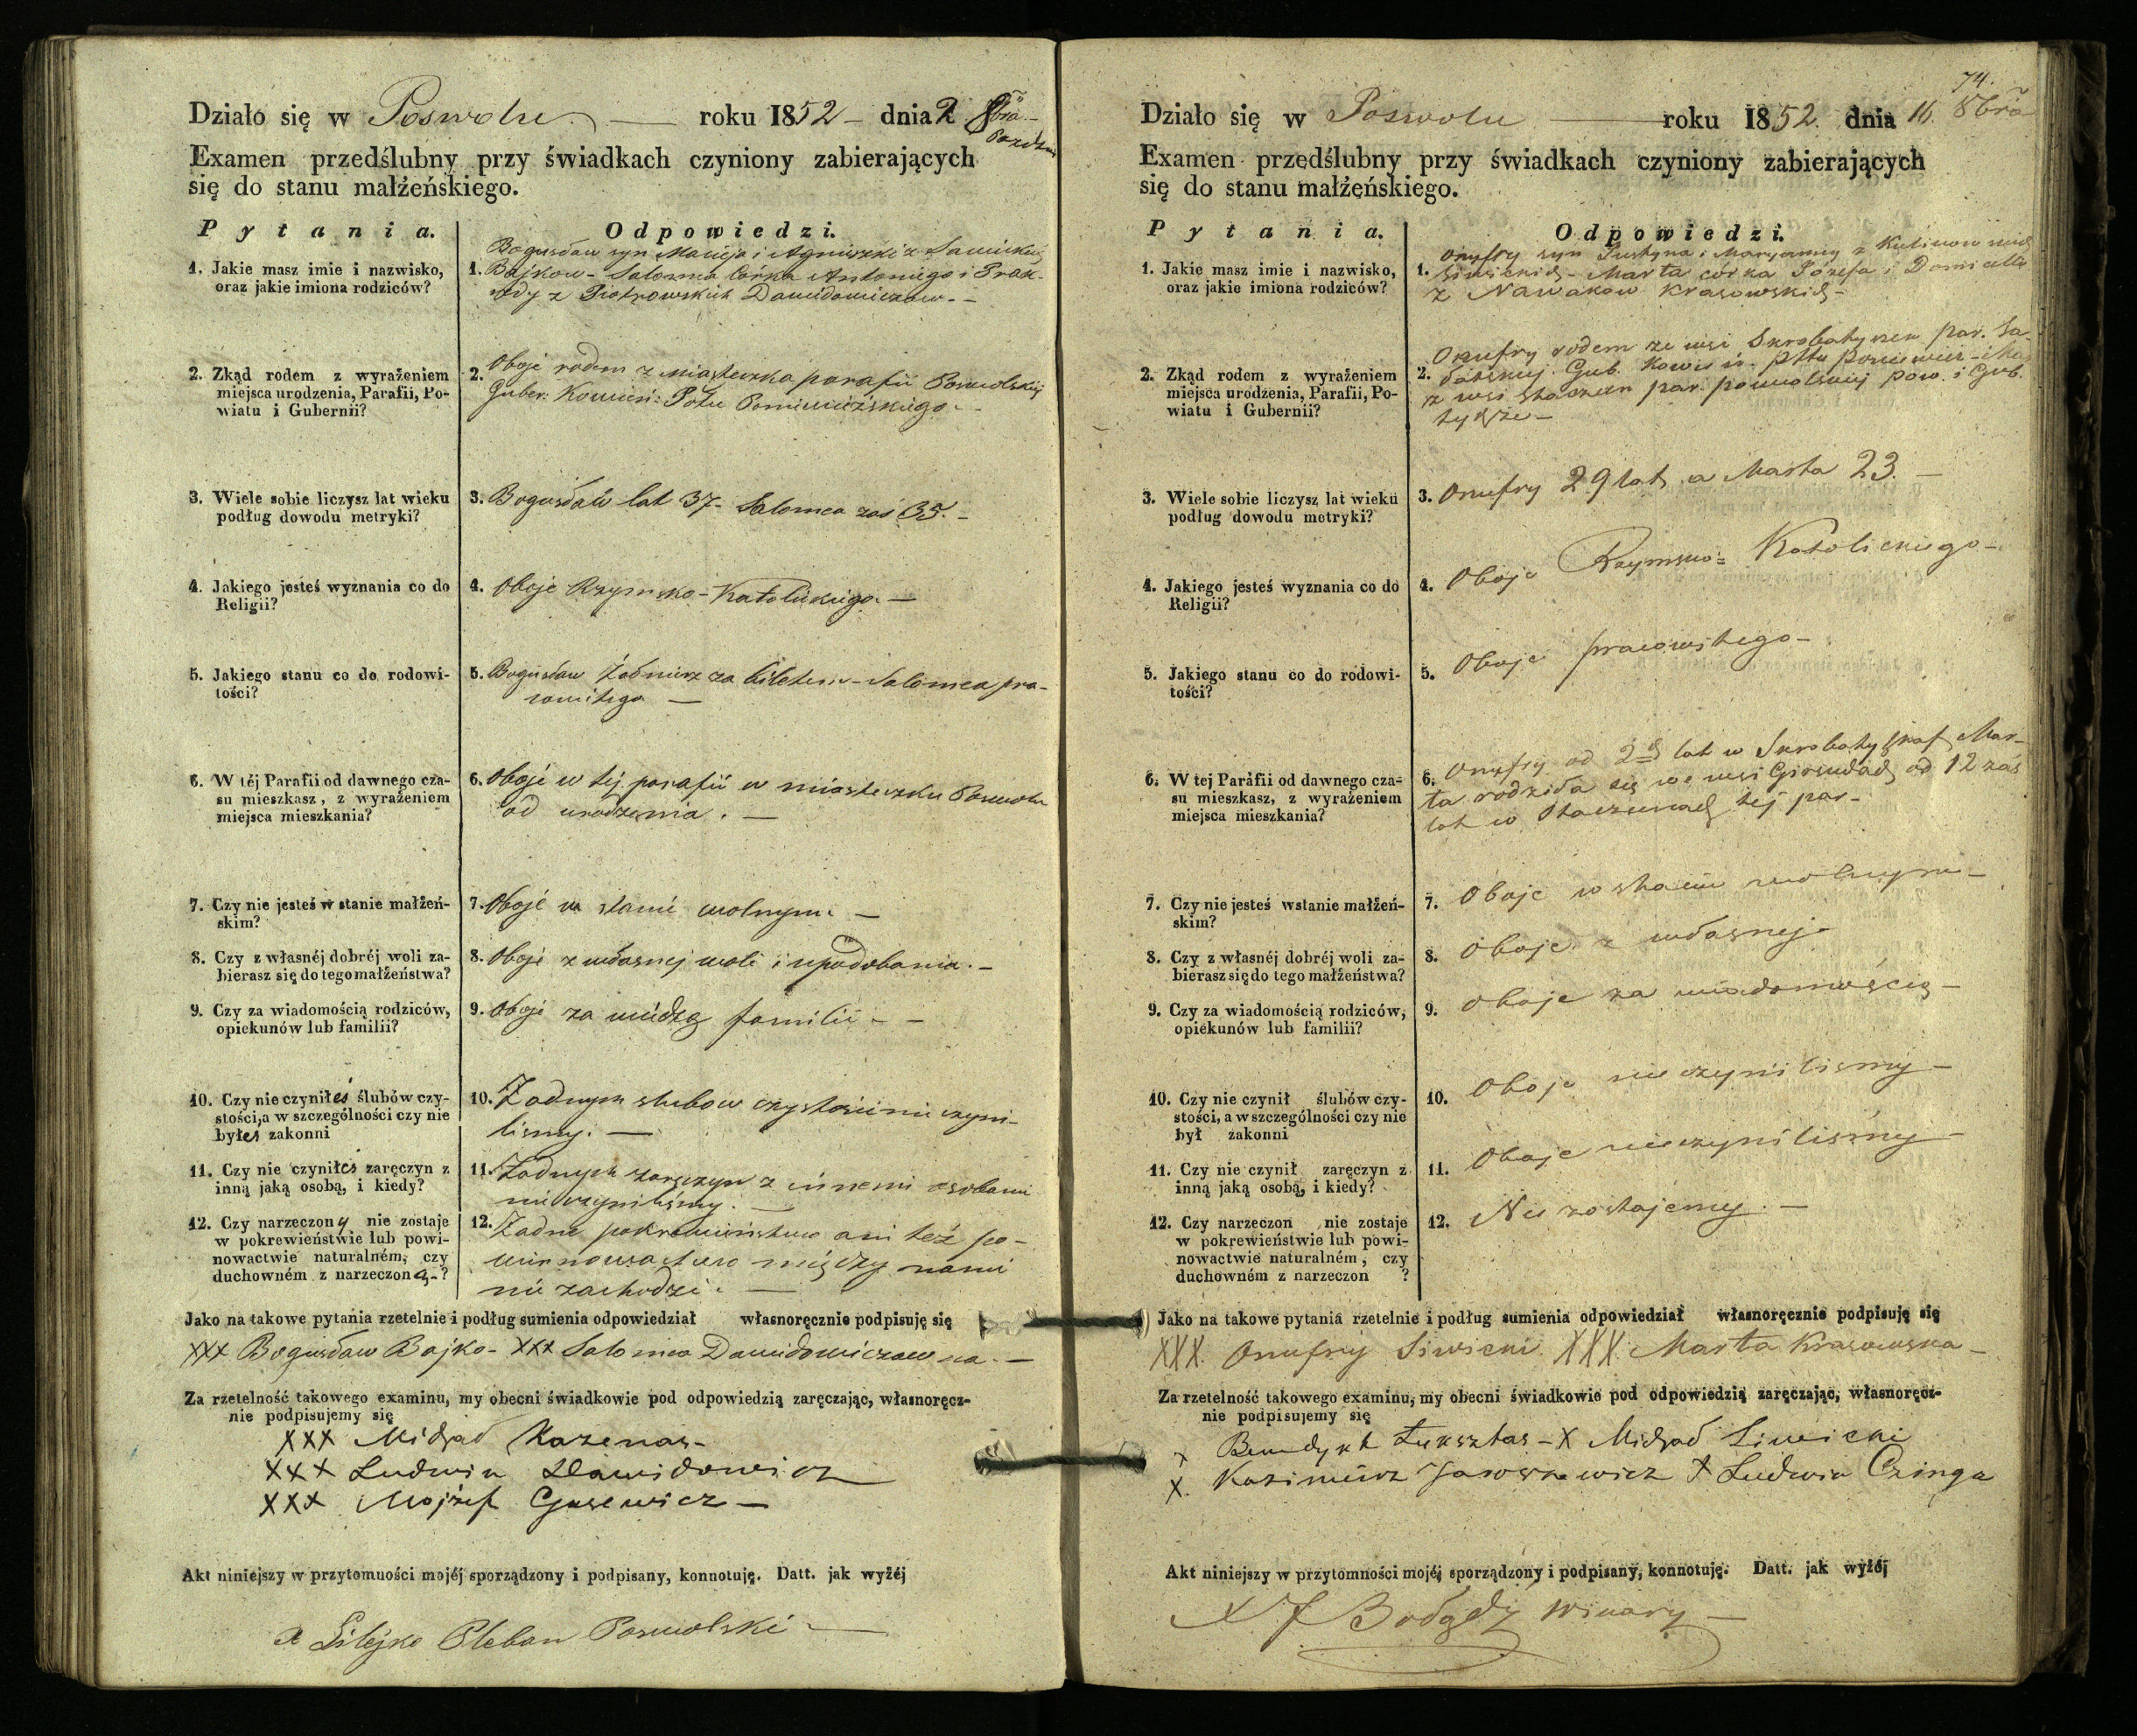 Działo się w Poswolu roku 1852 dnia 2 8bra
Examen przedślubny przy świadkach czyniony zabierających
się do stanu małżeńskiego.
Pytania. Odpowiedzi.
1. Jakie masz imie i nazwisko,
oraz jakie imiona rodziców?
1. Bogusław syn Macieja i Agnieszki z
Bajkow - Salomea córka Antoniego i Prak-
sedy z Piotrowskich Dawidowiczow. -
2. Zkąd rodem z wyrażeniem
miejsca urodzenia, Parafii, Po-
wiatu i Gubernii?
2. Oboje rodem z miasteczka parafii Poswolskiej
Guber: Kowień: Pttu Poniewieżskiego. -
3. Wiele sobie liczysz lat wieku
podług dowodu metryki?
3. Bogusław lat 37 - Salomea zaś 35. -
4. Jakiego jesteś wyznania co do
Religii?
4. Oboje Rzymsko-Katolickiego. -
5. Jakiego stanu co do rodowi-
tości?
5. Bogusław Żołnierz za biletem - Salomea pra-
cowitego -
6. W téj Parafii od dawnego cza-
su mieszkasz, z wyrażeniem
miejsca mieszkania?
6. Oboje w tej parafii w miasteczku Poswolu
od urodzenia. -
7. Czy nie jesteś w stanie małżeń-
skim?
7. Oboje w stanie wolnym. -
8. Czy z własnéj dobréj woli za-
bierasz się do tego małżeństwa?
8. Oboje z własnej woli i upodobania. -
9. Czy za wiadomością rodziców,
opiekunów lub familii?
9. Oboje za wiedzą familii - -
10. Czy nie czyniłeś ślubów czy-
stości, a w szczególności czy nie
byłeś zakonni
10. Żadnych slubow czystości nie czyni-
lismy. -
11. Czy nie czyniłeś zaręczyn z
inną jaką osobą, i kiedy?
11. Żadnych zaręczyn z innemi osobami
nie czyniliśmy. -
12. Czy narzeczony nie zostaje
w pokrewieństwie lub powi-
nowactwie naturalném, czy
duchowném z narzeczoną-?
12. Żadne pokrewieństwo ani też po-
winnowactwo między nami
nie zachodzi. -
Jako na takowe pytania rzetelnie i podług sumienia odpowiedział własnoręcznie podpisuję się
XXX Bogusław Bajko - XXX Salomea Dawidowiczowna. -
Za rzetelność takowego examinu, my obecni świadkowie pod odpowiedzią zaręczając, własnoręcz-
nie podpisujemy się
XXX Michał Kazenas -
XXX Ludwik Dawidowicz
XXX Mojżesz Gasewicz -
Akt niniejszy w przytomności mojéj sporządzony i podpisany, konnotuję. Datt. jak wyżéj
X Lilejko Pleban Poswolski -
74.
Działo się w Poswolu roku 1852. dnia 16. 8bra
Examen przedślubny przy świadkach czyniony zabierających
się do stanu małżeńskiego.
Pytania. Odpowiedzi.
1. Jakie masz imie i nazwisko,
oraz jakie imiona rodziców?
1. Onufry syn Justyna i Maryanny z
Siwickich - Marta córka Józefa i Domicelli
z Nawakow Krasowskich -
2. Zkąd rodem z wyrażeniem
miejsca urodzenia, Parafii, Po-
wiatu i Gubernii?
2. Onufry rodem ze wsi par. Sa-
łatskiej Gub. Kowień. Pttu Poniewież -
z wsi Staczun par. poswolskiej pow. i Gub.
tychże -
3. Wiele sobie liczysz lat wieku
podług dowodu metryki?
3. Onufry 29 lat, a Marta 23. -
4. Jakiego jesteś wyznania co do
Religii?
4. Oboje Rzymsko-Katolickiego -
5. Jakiego stanu co do rodowi-
tości?
5. Oboje pracowitego -
6. W tej Parafii od dawnego cza-
su mieszkasz, z wyrażeniem
miejsca mieszkania?
6. Onufry od 2ch lat w Skrobaty Mar-
ta rodziła się we wsi od 12 zaś
lat w Staczunach tej par -
7. Czy nie jesteś wstanie małżeń-
skim?
7. Oboje w stanie wolnym -
8. Czy z własnéj dobréj woli za-
bierasz się do tego małżeństwa?
8. Oboje z własnej -
9. Czy za wiadomością rodziców,
opiekunów lub familii?
9. Oboje za wiadomością -
10. Czy nie czynił ślubów czy-
stości, a w szczególności czy nie
był zakonni
10. Oboje nie czynilismy -
11. Czy nie czynił zaręczyn z
inną jaką osobą, i kiedy?
11. Oboje nie czyniliśmy -
12. Czy narzeczon nie zostaje
w pokrewieństwie lub powi-
nowactwie naturalném, czy
duchowném z narzeczon ?
12. Nie zostajemy. -
Jako na takowe pytania rzetelnie i podług sumienia odpowiedział własnoręcznie podpisuję się
XXX. Onufry Siwicki. XXX. Marta Krasowska -
Za rzetelność takowego examinu, my obecni świadkowie pod odpowiedzią zaręczając, własnoręcz-
nie podpisujemy się
X Benedykt Łuksztas - X Michał Siwicki
X. Kazimierz Jasowkewicz X Ludwik Czinga
Akt niniejszy w przytomności mojéj sporządzony i podpisany, konnotuję. Datt. jak wyżéj
X J Bołądź Wikary -